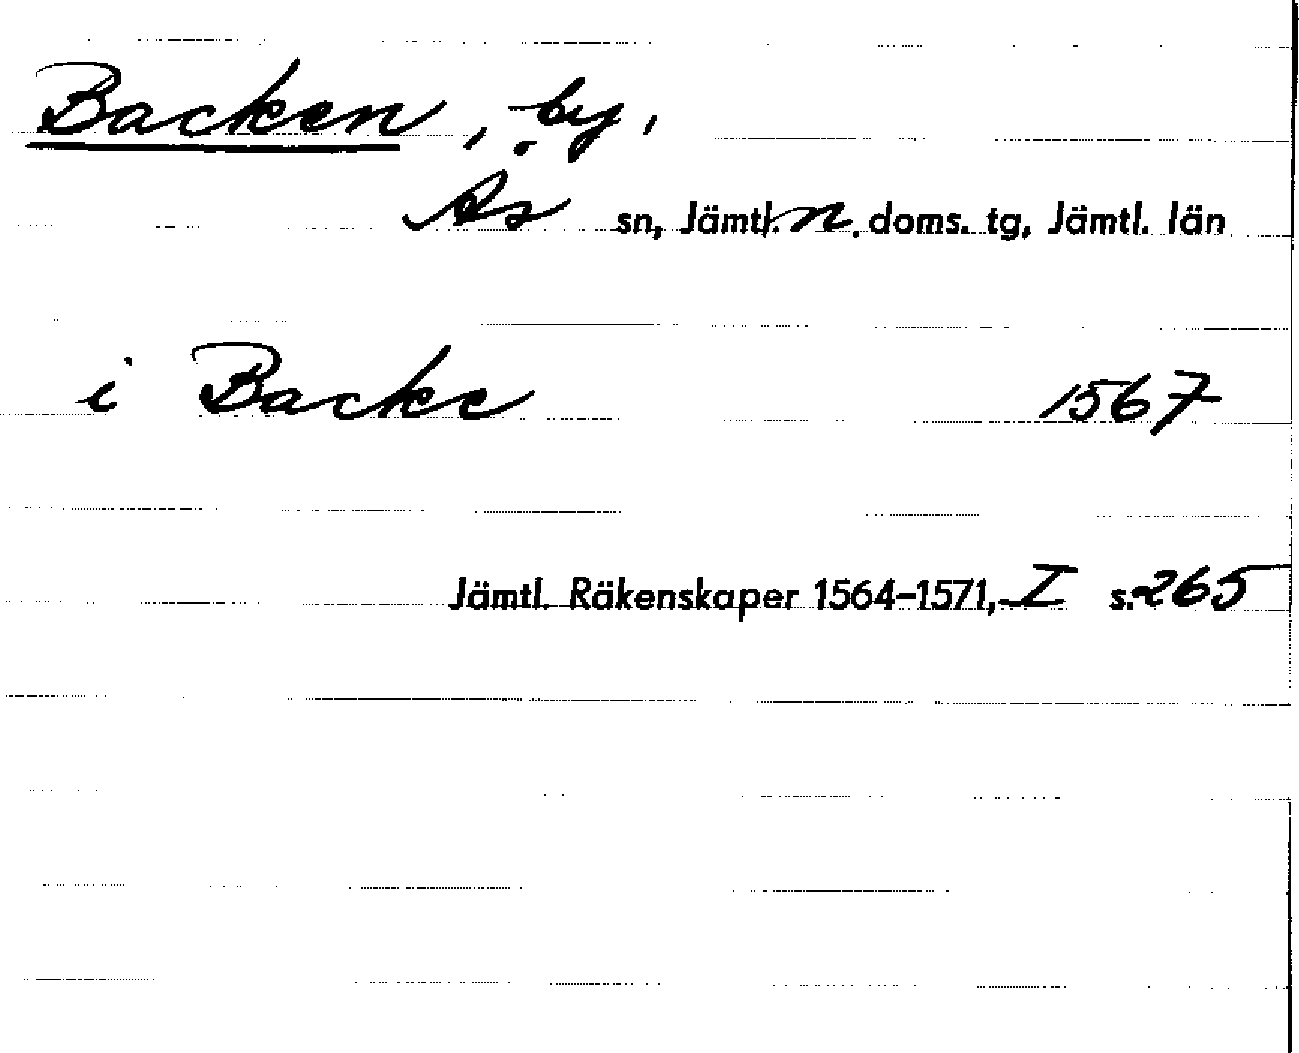 Backen, by,
Ås sn, Jämtl. n. doms. tg, Jämtl. län
i Backe 1567
Jämtl. Räkenskaper 1564-1571, I s. 265